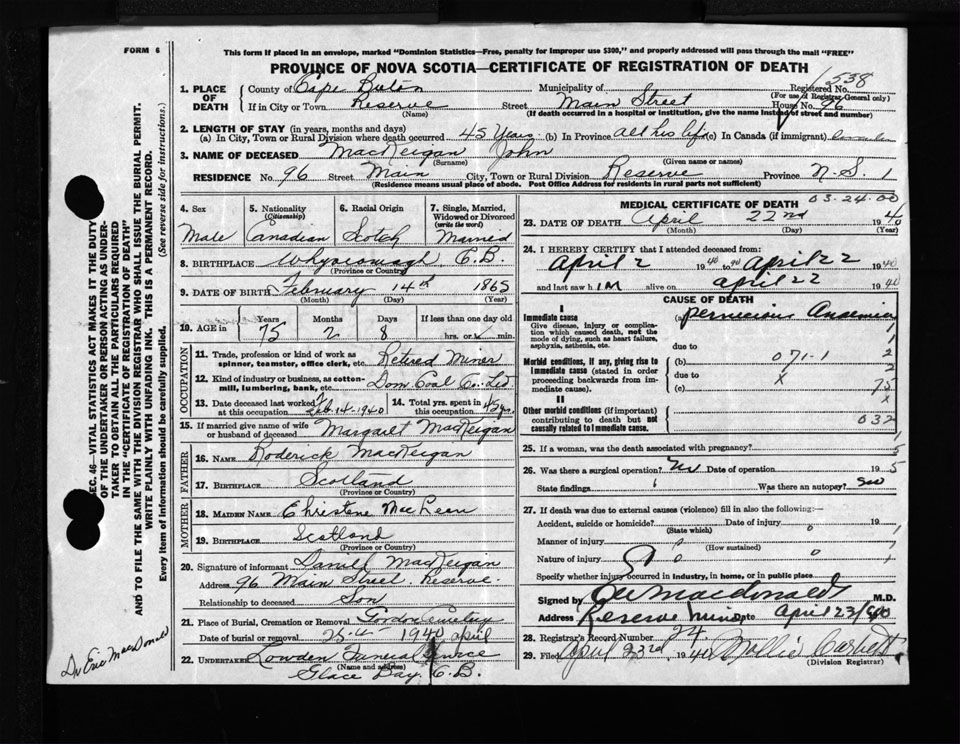 FORM 6
This form if placed in an envelope, marked "Dominion Statistics—Free, penalty for improper use $300," and properly addressed will pass through the mail "FREE"
PROVINCE OF NOVA SCOTIA—CERTIFICATE OF REGISTRATION OF DEATH
1. PLACE OF DEATH
County of Cape Breton Municipality of Registered No. 1538
(For use of Registrar-General only)
If in City or Town Reserve Street Main Street House No. 96
(Name) (If death occurred in a hospital or institution, give the name instead of street and number)
2. LENGTH OF STAY (in years, months and days)
(a) In City, Town or Rural Division where death occurred 45 Years (b) In Province all his life (c) In Canada (if immigrant)
3. NAME OF DECEASED MacKeigan John
(Surname) (Given name or names)
RESIDENCE No. 96 Street Main City, Town or Rural Division Reserve Province N.S. 1
(Residence means usual place of abode. Post Office Address for residents in rural parts not sufficient)
4. Sex 5. Nationality (Citizenship) 6. Racial Origin 7. Single, Married, Widowed or Divorced (write the word)
Male Canadian Scotch Married
8. BIRTHPLACE Whycocomagh C.B.
(Province or Country)
9. DATE OF BIRTH February 14th 1865
(Month) (Day) (Year)
10. AGE in Years Months Days If less than one day old
75 2 8 hrs. or min.
OCCUPATION
11. Trade, profession or kind of work as spinner, teamster, office clerk, etc. Retired Miner
12. Kind of industry or business, as cotton-mill, lumbering, bank, etc. Dom. Coal Co. Ltd
13. Date deceased last worked at this occupation Feb. 14-1940 14. Total yrs. spent in this occupation 45 yrs.
15. If married give name of wife or husband of deceased Margaret MacKeigan
FATHER
16. NAME Roderick MacKeigan
17. BIRTHPLACE Scotland
(Province or Country)
MOTHER
18. MAIDEN NAME Christene MacLean
19. BIRTHPLACE Scotland
(Province or Country)
20. Signature of informant Daniel MacKeigan
Address 96 Main Street Reserve.
Relationship to deceased Son
21. Place of Burial, Cremation or Removal
Date of burial or removal 25-4- 1940 april
22. UNDERTAKER Lowden Funeral Service
(Name and address)
Glace Bay C.B.
MEDICAL CERTIFICATE OF DEATH 03-24-00
23. DATE OF DEATH April 22nd 1940
(Month) (Day) (Year)
24. I HEREBY CERTIFY that I attended deceased from:
April 2 1940 to April 22 1940
and last saw him alive on April 22 1940
CAUSE OF DEATH
I
Immediate cause (a) Pernicious Anaemia
Give disease, injury or complication which caused death, not the mode of dying, such as heart failure, asphyxia, asthenia, etc.
due to
Morbid conditions, if any, giving rise to immediate cause (stated in order proceeding backwards from immediate cause). (b) 071-1
due to X
(c)
II
Other morbid conditions (if important) contributing to death but not causally related to immediate cause. 032
25. If a woman, was the death associated with pregnancy?
26. Was there a surgical operation? no Date of operation 19
State findings Was there an autopsy? no
27. If death was due to external causes (violence) fill in also the following:—
Accident, suicide or homicide? Date of injury 0 19
(State which)
Manner of injury 0
(How sustained)
Nature of injury 0 0
Specify whether injury occurred in industry, in home, or in public place
Signed by Macdonald M.D.
Address Reserve Mines Date April 23/40
28. Registrar's Record Number 24
29. Filed April 23rd 1940 Mollie Corbett
(Division Registrar)
SEC. 46—VITAL STATISTICS ACT MAKES IT THE DUTY OF THE UNDERTAKER OR PERSON ACTING AS UNDERTAKER TO OBTAIN ALL THE PARTICULARS REQUIRED IN THE "CERTIFICATE OF REGISTRATION OF DEATH" AND TO FILE THE SAME WITH THE DIVISION REGISTRAR WHO SHALL ISSUE THE BURIAL PERMIT.
WRITE PLAINLY WITH UNFADING INK. THIS IS A PERMANENT RECORD.
Every item of information should be carefully supplied. (See reverse side for instructions.)
Dr Eric MacDonald